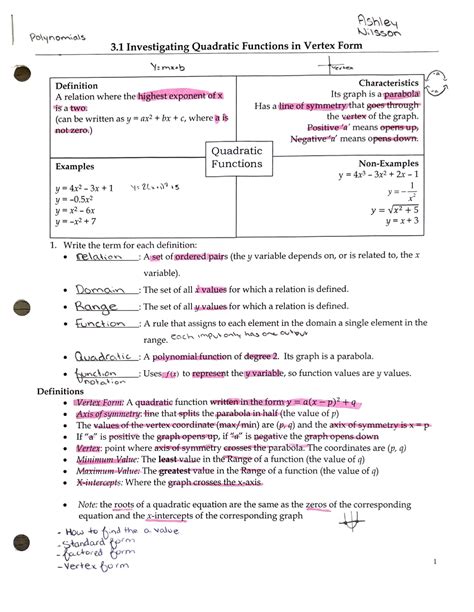 Ashley
Nilsson
Polynomials
3.1 Investigating Quadratic Functions in Vertex Form
y=mx+b
vertex
Definition
A relation where the highest exponent of x
is a two.
(can be written as y = ax² + bx + c, where a is
not zero.)
Characteristics
Its graph is a parabola
Has a line of symmetry that goes through
the vertex of the graph.
Positive 'a' means opens up,
Negative 'a' means opens down.
Quadratic
Functions
Examples
y = 4x² – 3x + 1
y = –0.5x²
y = x² – 6x
y = –x² + 7
Non-Examples
y = 4x³ – 3x² + 2x – 1
y = – 1/x²
y = √x² + 5
y = x + 3
1. Write the term for each definition:
• relation : A set of ordered pairs (the y variable depends on, or is related to, the x
variable).
• Domain : The set of all x values for which a relation is defined.
• Range : The set of all y values for which a relation is defined.
• Function : A rule that assigns to each element in the domain a single element in the
range. each input only has one output
• Quadratic : A polynomial function of degree 2. Its graph is a parabola.
• function notation : Uses f(x) to represent the y variable, so function values are y values.
Definitions
• Vertex Form: A quadratic function written in the form y = a(x – p)² + q
• Axis of symmetry: line that splits the parabola in half (the value of p)
• The values of the vertex coordinate (max/min) are (p, q) and the axis of symmetry is x = p
• If "a" is positive the graph opens up, if "a" is negative the graph opens down
• Vertex: point where axis of symmetry crosses the parabola. The coordinates are (p, q)
• Minimum Value: The least value in the Range of a function (the value of q)
• Maximum Value: The greatest value in the Range of a function (the value of q)
• X-intercepts: Where the graph crosses the x-axis.
• Note: the roots of a quadratic equation are the same as the zeros of the corresponding
equation and the x-intercepts of the corresponding graph
- How to find the a value
- Standard form
- factored form
- Vertex form
1